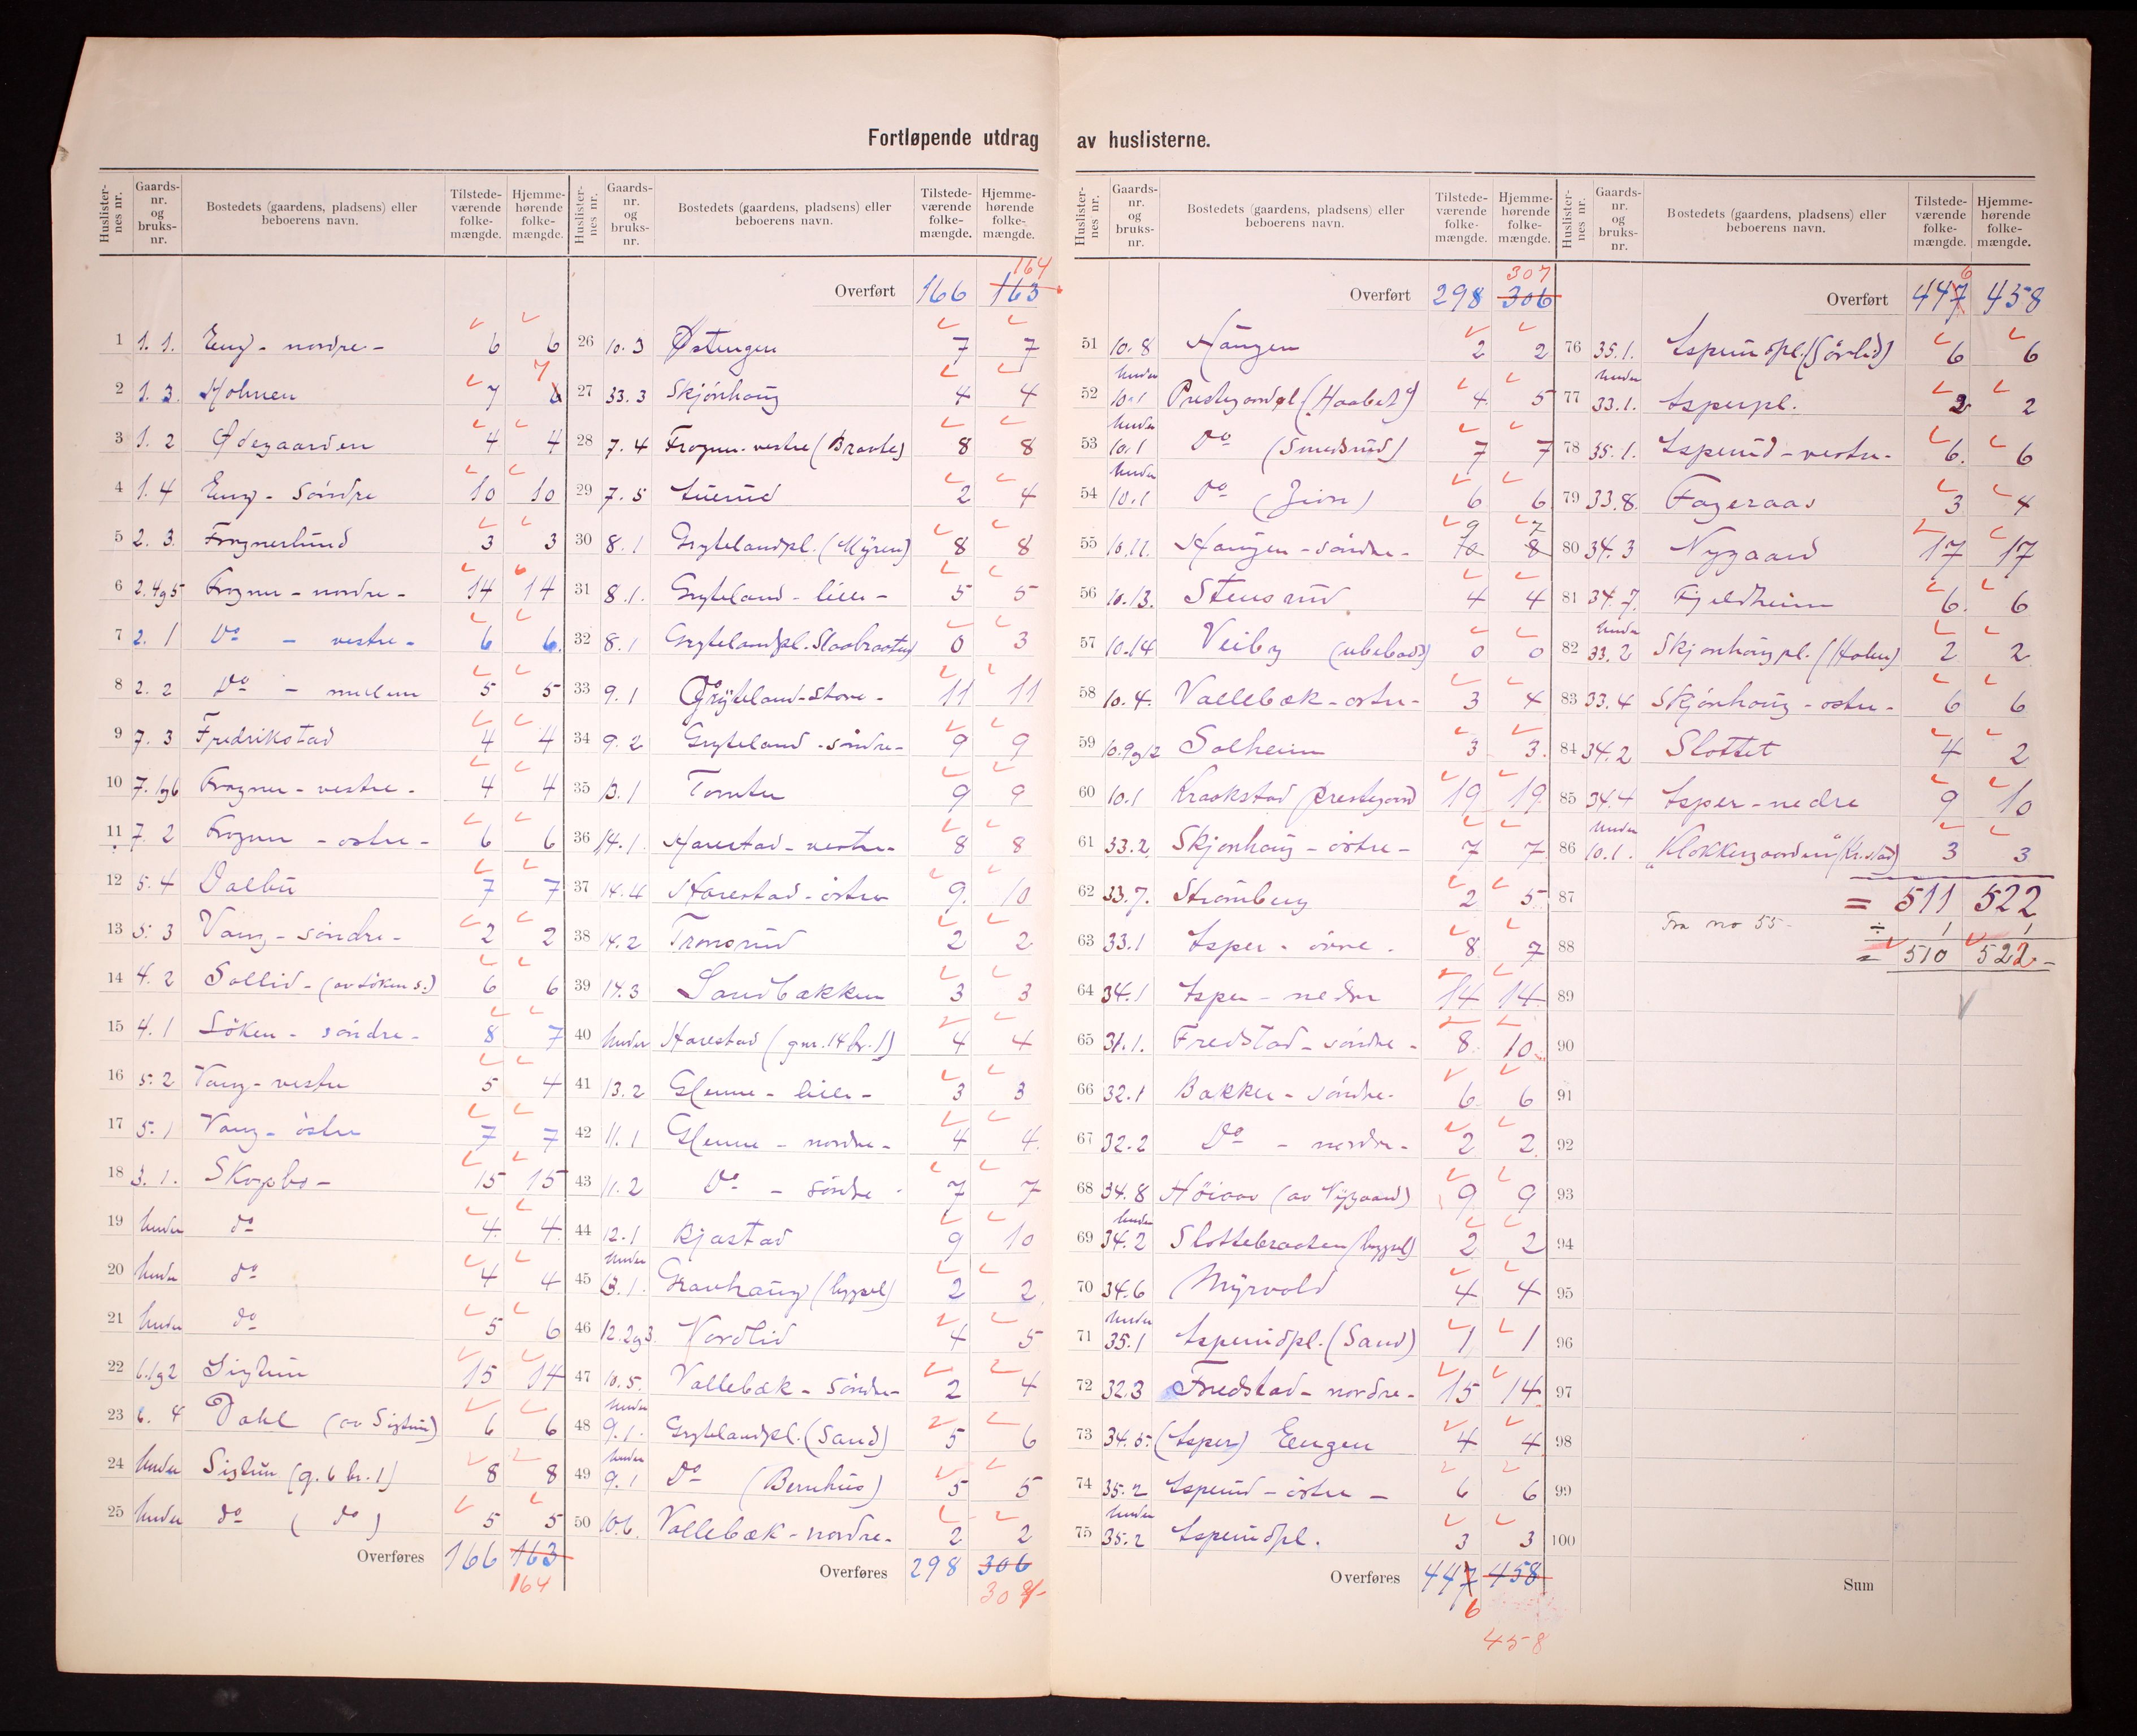 Fortløpende utdrag av huslisterne.
Huslister-nes nr. Gaards-nr. og bruks-nr. Bostedets (gaardens, pladsens) eller beboerens navn. Tilstede-værende folke-mængde. Hjemme-hørende folke-mængde.
1 1. 1. Eng - nordre - 6 6
2 1. 3. Holmen 7 6 7
3 1. 2 Ødegaarden 4 4
4 1. 4 Eng - söndre 10 10
5 2. 3. Frognerlund 3 3
6 2. 4og5 Frogner - nordre - 14 14
7 2. 1 Do - vestre - 6 6.
8 2. 2 Do - mellem 5 5
9 7. 3 Fredrikstad 4 4
10 7. 1og6 Frogner - vestre - 4 4
11 7. 2 Frogner - østre - 6 6
12 5. 4 Dalbu 7 7
13 5. 3 Vang - söndre - 2 2
14 4. 2 Sollid - (av Löken s.) 6 6
15 4. 1 Löken - söndre - 8 7
16 5. 2 Vang - vestre 5 4
17 5. 1 Vang - östre 7 7
18 3. 1. Skorpbo - 15 15
19 Under do 4 4
20 Under do 4 4
21 Under do 5 6
22 6.1og2 Sigtun 15 14
23 6. 4 Dahl (av Sigtun) 6 6
24 Under Sigtun (g. 6 br. 1) 8 8
25 Under do ( do ) 5 5
Overføres 166 163
164
Huslister-nes nr. Gaards-nr. og bruks-nr. Bostedets (gaardens, pladsens) eller beboerens navn. Tilstede-værende folke-mængde. Hjemme-hørende folke-mængde.
164
Overført 166 163
26 10. 3 Østengen 7 7
27 33. 3 Skjönhaug 4 4
28 7. 4 Frogner - vestre (Braate) 8 8
29 7. 5 Lurud 2 4
30 8. 1 Grytelandpl. (Myren) 8 8
31 8. 1. Gryteland - lille - 5 5
32 8. 1 Grytelandpl. Slaabraaten) 0 3
33 9. 1 Gryteland - store - 11 11
34 9. 2 Gryteland - söndre - 9 9
35 13. 1 Tomter 9 9
36 14. 1. Harestad - vestre - 8 8
37 14. 4 Harestad - östre 9. 10
38 14. 2 Tronsrud 2 2
39 14. 3 Sandbakken 3 3
40 Under Harestad (gnr. 14 br. 1) 4 4
41 13. 2 Glenne - lille - 3 3
42 11. 1 Glenne - nordre - 4 4.
43 11. 2 Do - söndre - 7 7
44 12. 1 Kjastad 9 10
45 Under 13. 1. Gravhaug (hyggel) 2 2
46 12. 2og3. Nordlid 4 5
47 10. 5. Vallebæk - söndre - 2 4
48 Under 9. 1. Grytelandpl. (Sand) 5 6
49 Under 9. 1 Do (Bernhus) 5 5
50 10.6. Vallebæk - nordre - 2 2
Overføres 298 306
307
Huslister-nes nr. Gaards-nr. og bruks-nr. Bostedets (gaardens, pladsens) eller beboerens navn. Tilstede-værende folke-mængde. Hjemme-hørende folke-mængde.
307
Overført 298 306
51 10. 8 Haugen 2 2
52 Under 10. 1 Prestegardpl (Haabet) 4. 5
53 Under 10. 1 Do (Smedsrud) 7 7
54 Under 10. 1 Do (Zion) 6 6
55 10. 11. Haugen - söndre - 10 9 8 7
56 10. 13. Stensrud 4 4
57 10. 14 Veiby (ubebodd) 0 0
58 10. 4. Vallebæk - østre - 3 4
59 10. 9og12 Solheim 3 3.
60 10. 1 Kraakstad prestegaard 19 19
61 33. 2. Skjønhaug - östre - 7 7
62 33. 7. Strömberg 2 5
63 33. 1 Asper - övre - 8 7
64 34. 1 Asper - nedre 14 14
65 31. 1. Fredstad - söndre - 8. 10
66 32. 1 Bakker - söndre - 6 6
67 32. 2 Do - nordre - 2 2
68 34. 8 Höiaas (av Nygaard) 9 9
69 Under 34. 2 Slottebraaten (hyggel) 2 2
70 34. 6 Myrvold 4 4
71 Under 35. 1 Asperudpl. (Sand) 1 1
72 32. 3 Fredstad - nordre - 15 14
73 34. 5. (Asper) Eengen 4 4
74 35. 2 Asperud - östre - 6 6
75 Under 35. 2 Asperudpl. 3 3
Overføres 447 458
6
458
Huslister-nes nr. Gaards-nr. og bruks-nr. Bostedets (gaardens, pladsens) eller beboerens navn. Tilstede-værende folke-mængde. Hjemme-hørende folke-mængde.
6
Overført 447 458
76 35. 1. Asperudpl. (Sörlid) 6 6
77 Under 33. 1. Asperpl. 2 2
78 35. 1. Asperud - vestre - 6. 6
79 33. 8. Fageraas 3 4
80 34. 3 Nygaard 17 17
81 34. 7. Fjeldheim 6. 6
82 Under 33. 2 Skjønhaugpl. (Holen) 2 2
83 33. 4 Skjønhaug - østre - 6 6
84 34. 2 Slottet 4 2
85 34. 4 Asper - nedre 9 10
86 Under 10. 1. "Klokkergaarden" (Kr.stad) 3 3
87 = 511 522
88 Fra no 55 - ÷ 1 1
= 510 522 -
89
90
91
92
93
94
95
96
97
98
99
100
Sum